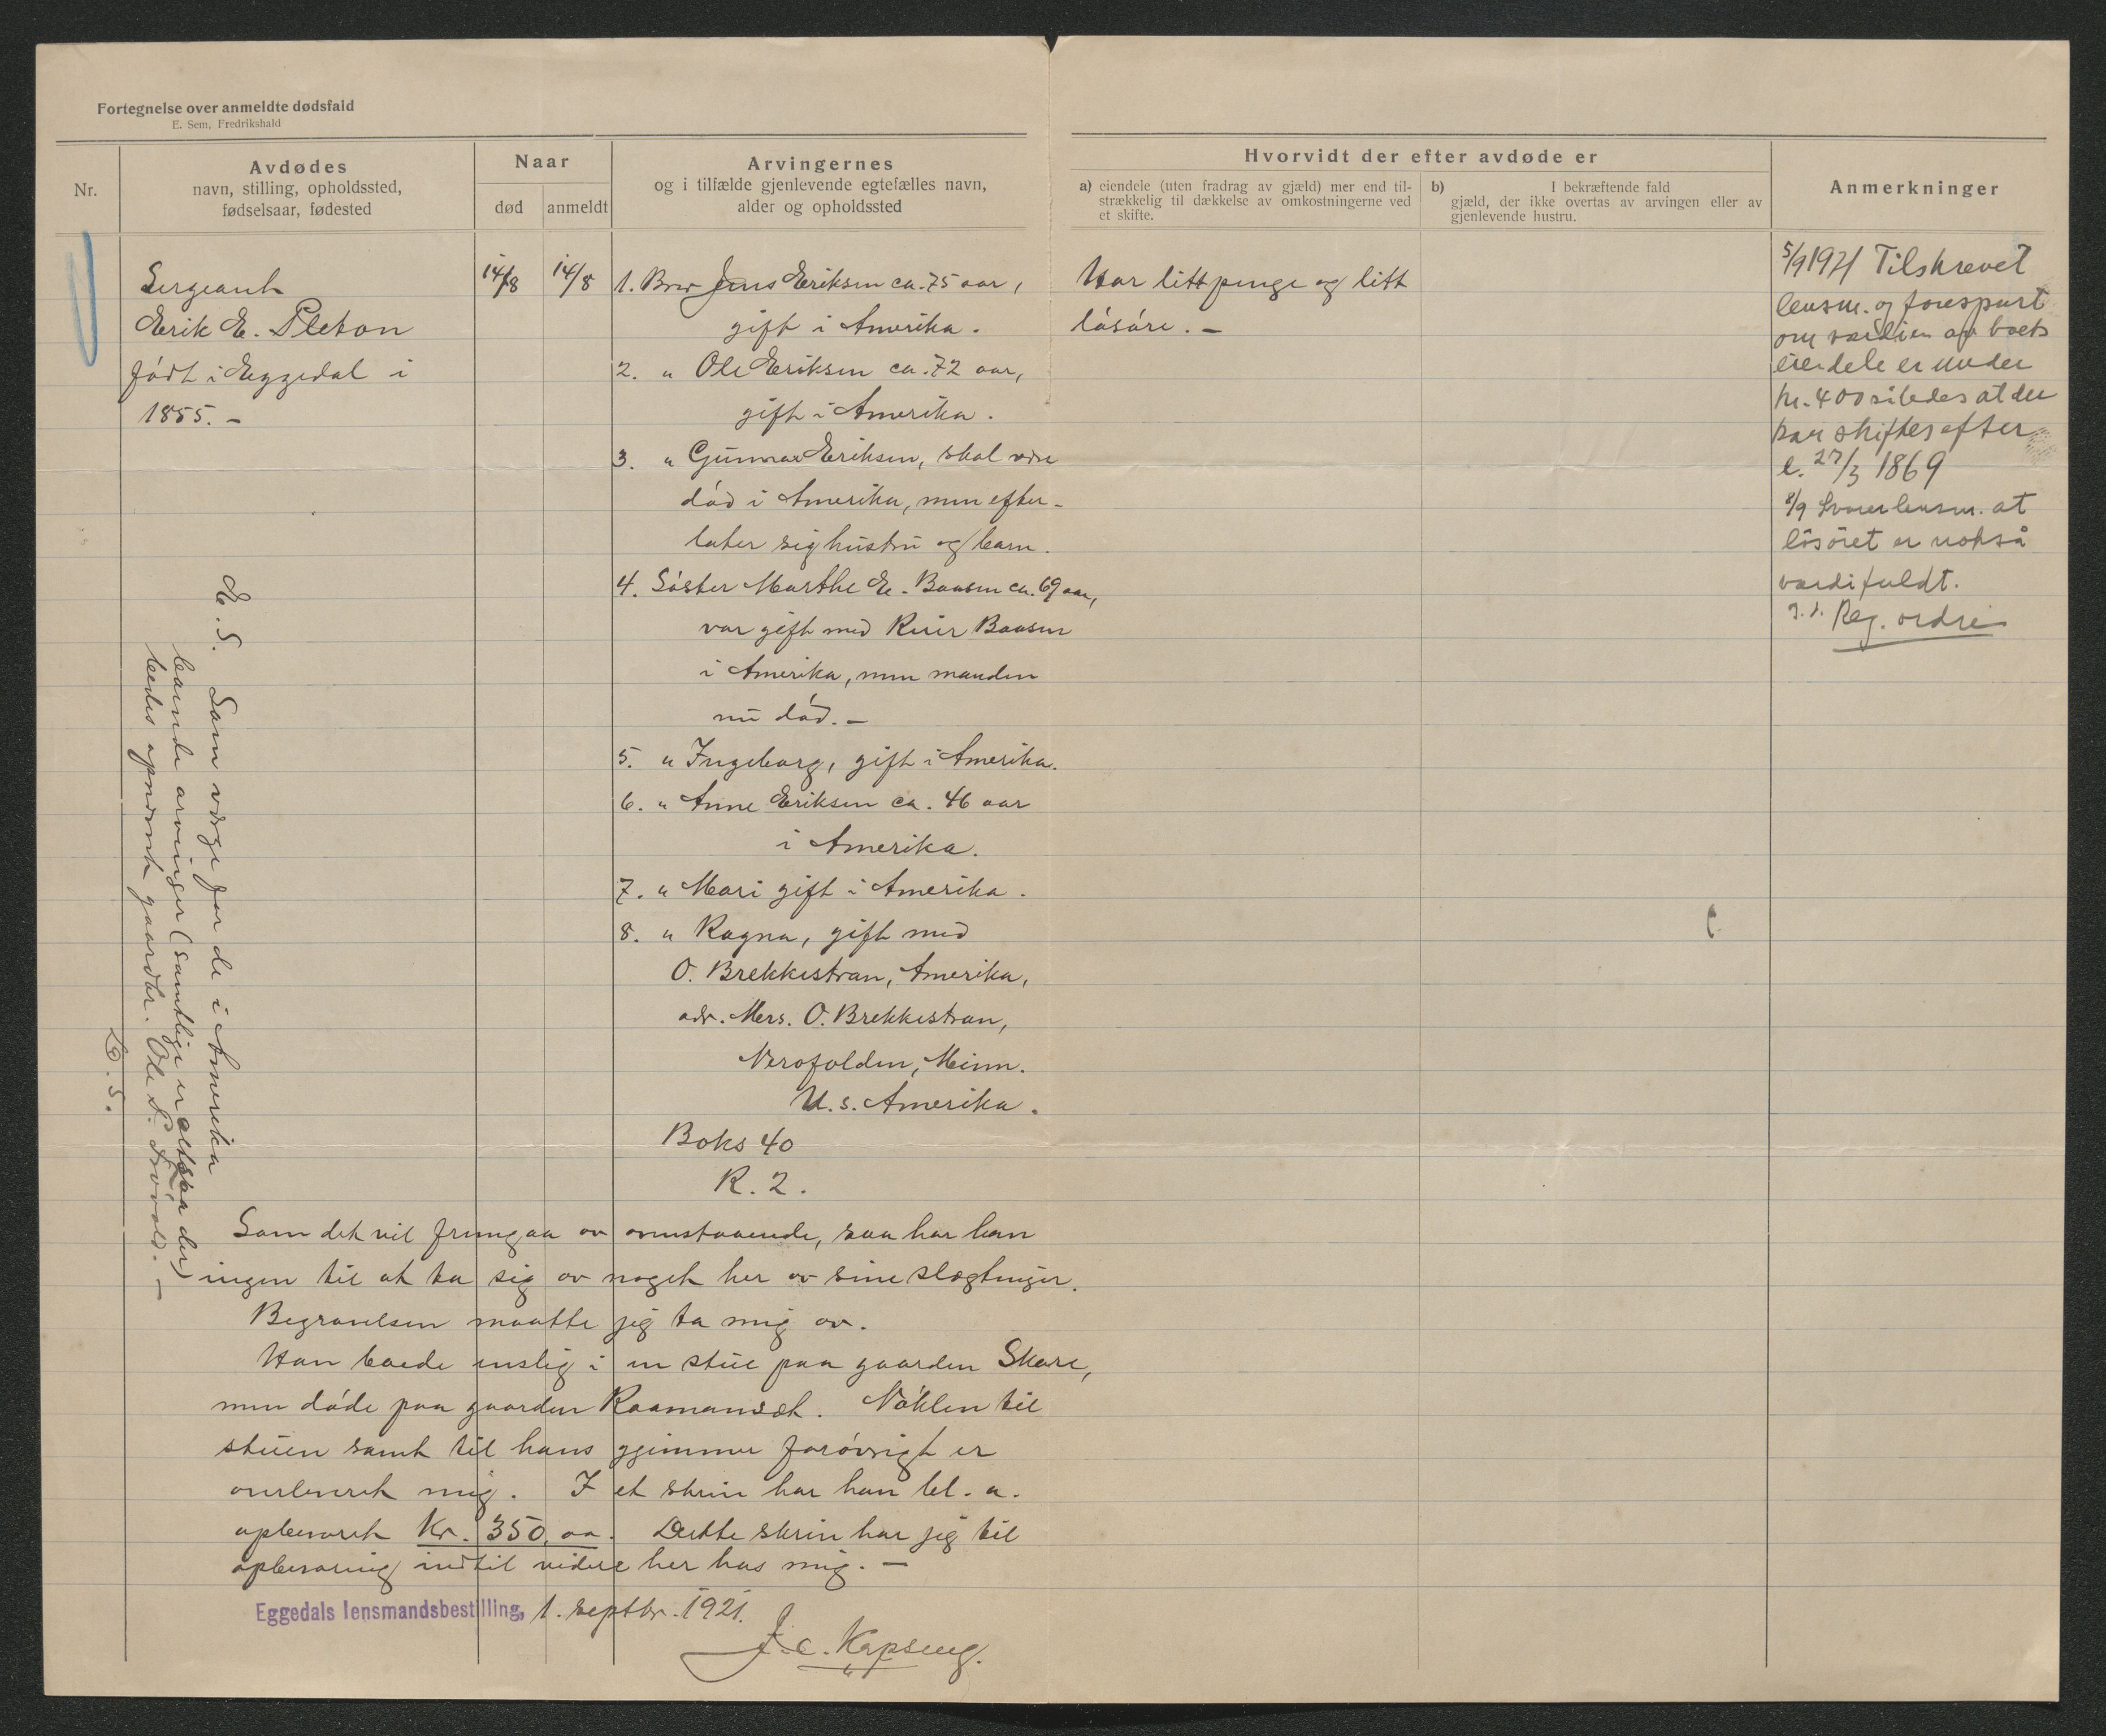 Fortegnelse over anmeldte dødsfald
E. Sem, Fredrikshald
Nr.
Avdødes
navn, stilling, opholdssted,
fødselsaar, fødested
Naar
død
anmeldt
Arvingernes
og i tilfælde gjenlevende egtefælles navn,
alder og opholdssted
Hvorvidt der efter avdøde er
a) eiendele (uten fradrag av gjæld) mer end til-
strækkelig til dækkelse av omkostningerne ved
et skifte.
b) I bekræftende fald
gjæld, der ikke overtas av arvingen eller av
gjenlevende hustru.
Anmerkninger
Sergeant
Erik E. Pleton
født i Eggedal i
1855. –
14/8
14/8
1. Bror Jens Eriksen ca. 75 aar,
gift i Amerika.
2. " Ole Eriksen ca. 72 aar,
gift i Amerika.
3. " Gunnar Eriksen, skal være
død i Amerika, men efter-
later sig hustru og barn.
4. Søster Marthe E. Baasen ca. 69 aar,
var gift med Baasen
i Amerika, men manden
nu død. –
5. " Ingeborg, gift i Amerika.
6. " Anne Eriksen ca. 46 aar
i Amerika.
7. " Mari gift i Amerika.
8. " Ragna, gift med
O. Brekkestran, Amerika,
adr. Mers. O. Brekkestran,
Minn.
U. s. Amerika.
Boks 40
R. 2.
Har litt penge og litt
løsøre. –
5/9 1921 Tilskrevet
lensm. og forespurt
om værdien av boets
eiendele er under
kr. 400 således at der
kan skiftes efter
l. 27/3 1869
8/9 Svarer lensm. at
løsøret er nokså
værdifuldt.
Reg. ordre
E. S. Som verge for de i Amerika
boende arvinger (samtlige er altsaa der)
bedes opnævnt gaardbr. Ole S. –
D. S.
Som det vil fremgaa av ovenstaaende, saa har han
ingen til at ta sig av noget her av sine slægtninger.
Begravelsen maatte jeg ta mig av.
Han boede enslig i en stue paa gaarden Skare,
men døde paa gaarden Raamanset. Nøklen til
stuen samt til hans gjemmer forøvrigt er
overlevert mig. I et skrin har han bl. a.
opbevart Kr. 350,00. Dette skrin har jeg til
opbevaring indtil videre her hos mig. –
Eggedals lensmandsbestilling, 1. septbr. 1921.